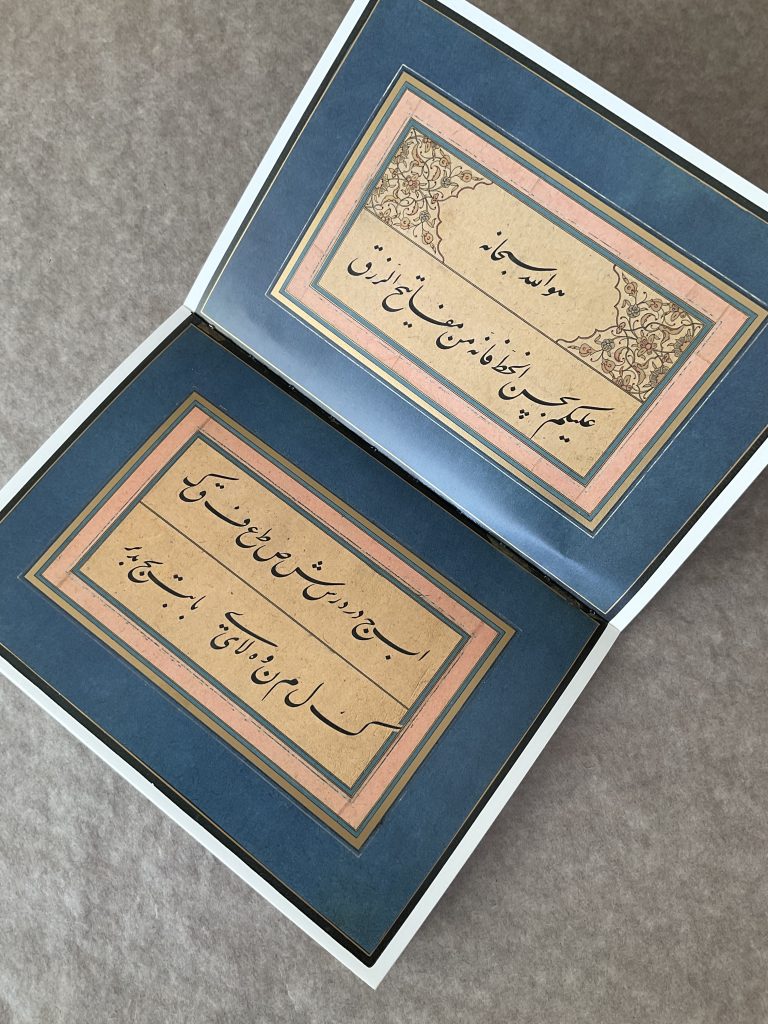 هو الله سبحانه
عليكم بحسن الخط فانه من مفاتيح الرزق
ا ب ج د ر س ش ص ط ع ف ق ک
ک ل م ن و ه لا ی ے با بت بج بد بر